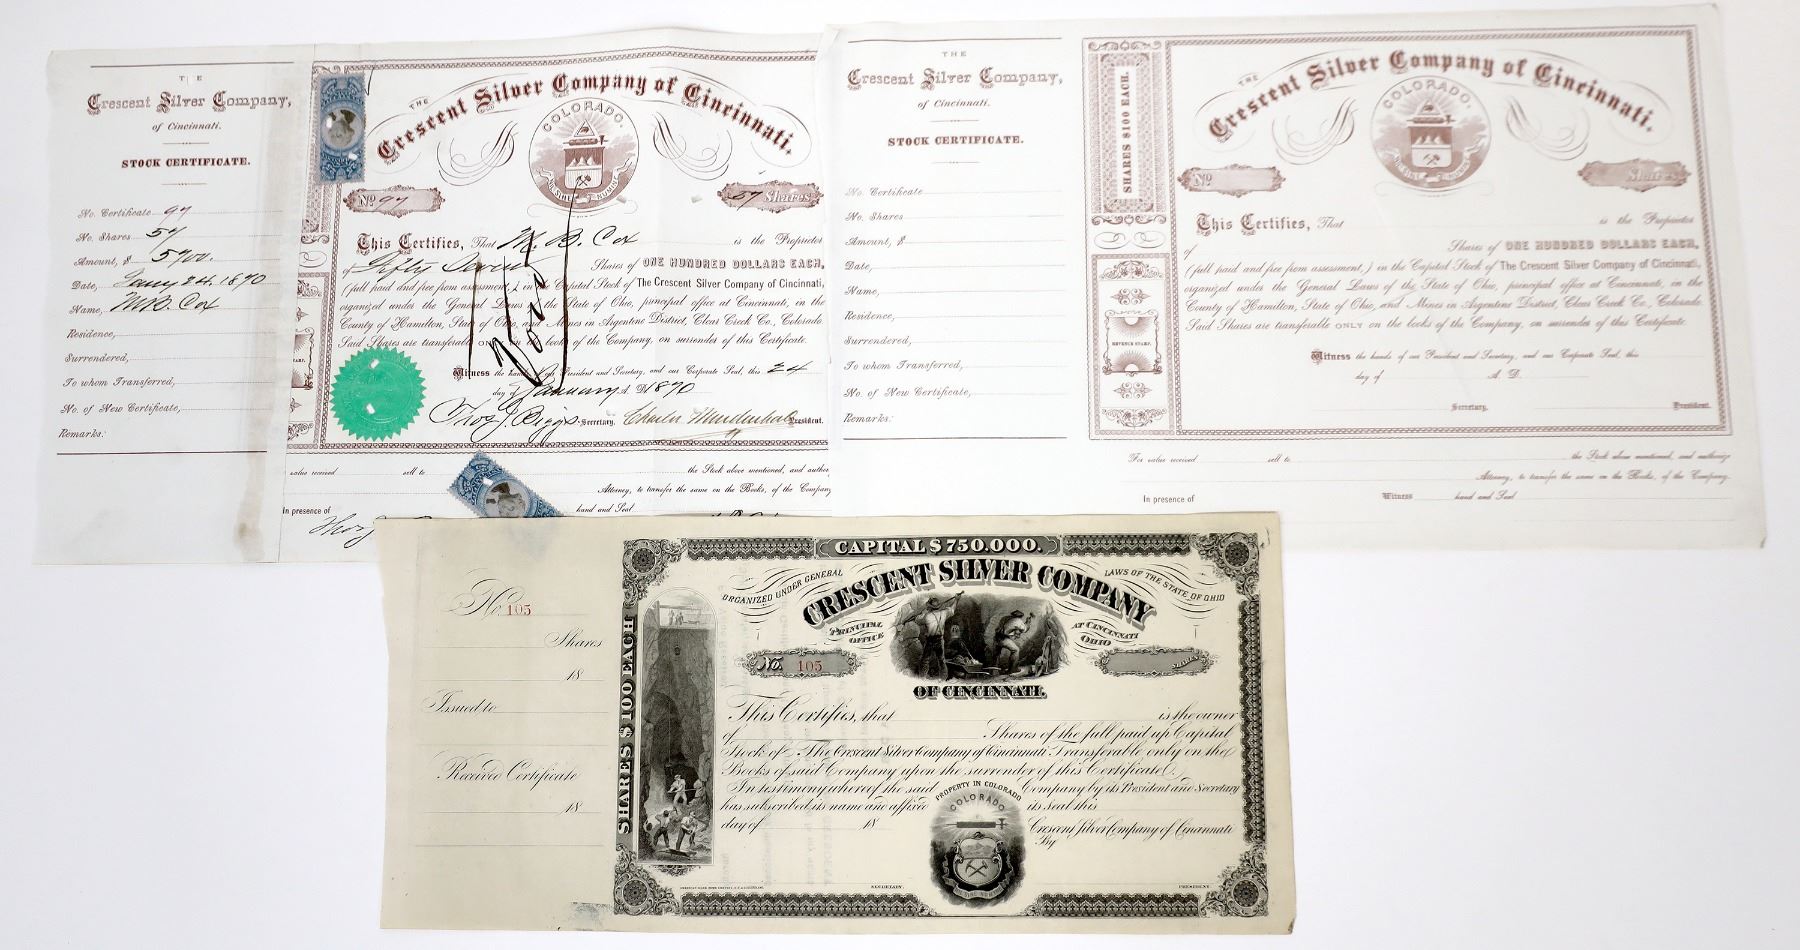 THE
Crescent Silver Company,
of Cincinnati.
STOCK CERTIFICATE.
No. Certificate 97
No. Shares 57
Amount, $ 5700.
Date, Jany 24, 1870
Name, M. B. Cox
Residence,
Surrendered,
To whom Transferred,
No. of New Certificate,
Remarks:
THE
Crescent Silver Company of Cincinnati.
COLORADO.
NIL SINE NUMINE
No 97
57 Shares
This Certifies, That M. B. Cox is the Proprietor
of Fifty Seven Shares of ONE HUNDRED DOLLARS EACH,
(full paid and free from assessment,) in the Capital Stock of The Crescent Silver Company of Cincinnati,
organized under the General Laws of the State of Ohio, principal office at Cincinnati, in the
County of Hamilton, State of Ohio, and Mines in Argentine District, Clear Creek Co., Colorado.
Said Shares are transferable ONLY on the books of the Company, on surrender of this Certificate.
Witness the hands of our President and Secretary, and our Corporate Seal, this 24
day of January A. D. 1870
Thos J. Biggs Secretary. Charles Mendenhall President.
value received sell to the Stock above mentioned, and author
Attorney, to transfer the same on the Books, of the Company
In presence of hand and Seal
Thos J
THE
Crescent Silver Company,
of Cincinnati.
STOCK CERTIFICATE.
No. Certificate
No. Shares
Amount, $
Date,
Name,
Residence,
Surrendered,
To whom Transferred,
No. of New Certificate,
Remarks:
SHARES $100 EACH.
REVENUE STAMP.
THE
Crescent Silver Company of Cincinnati.
COLORADO.
NIL SINE NUMINE
No
Shares
This Certifies, That is the Proprietor
of Shares of ONE HUNDRED DOLLARS EACH,
(full paid and free from assessment,) in the Capital Stock of The Crescent Silver Company of Cincinnati,
organized under the General Laws of the State of Ohio, principal office at Cincinnati, in the
County of Hamilton, State of Ohio, and Mines in Argentine District, Clear Creek Co., Colorado.
Said Shares are transferable ONLY on the books of the Company, on surrender of this Certificate.
Witness the hands of our President and Secretary, and our Corporate Seal, this
day of A. D.
Secretary. President.
For value received sell to the Stock above mentioned, and authorize
Attorney, to transfer the same on the Books, of the Company.
In presence of Witness hand and Seal
No. 105
Shares
18
Issued to
Received Certificate
18
SHARES $100 EACH
CAPITAL $750.000.
ORGANIZED UNDER GENERAL LAWS OF THE STATE OF OHIO
CRESCENT SILVER COMPANY
PRINCIPAL OFFICE AT CINCINNATI OHIO
No. 105
SHARES
OF CINCINNATI.
This Certifies, that is the owner
of Shares of the full paid up Capital
Stock of The Crescent Silver Company of Cincinnati Transferable only on the
Books of said Company upon the surrender of this Certificate.
In testimony whereof the said Company by its President and Secretary
has subscribed its name and affixed its Seal this
day of 18 Crescent Silver Company of Cincinnati
By
PROPERTY IN COLORADO
COLORADO
SECRETARY. PRESIDENT.